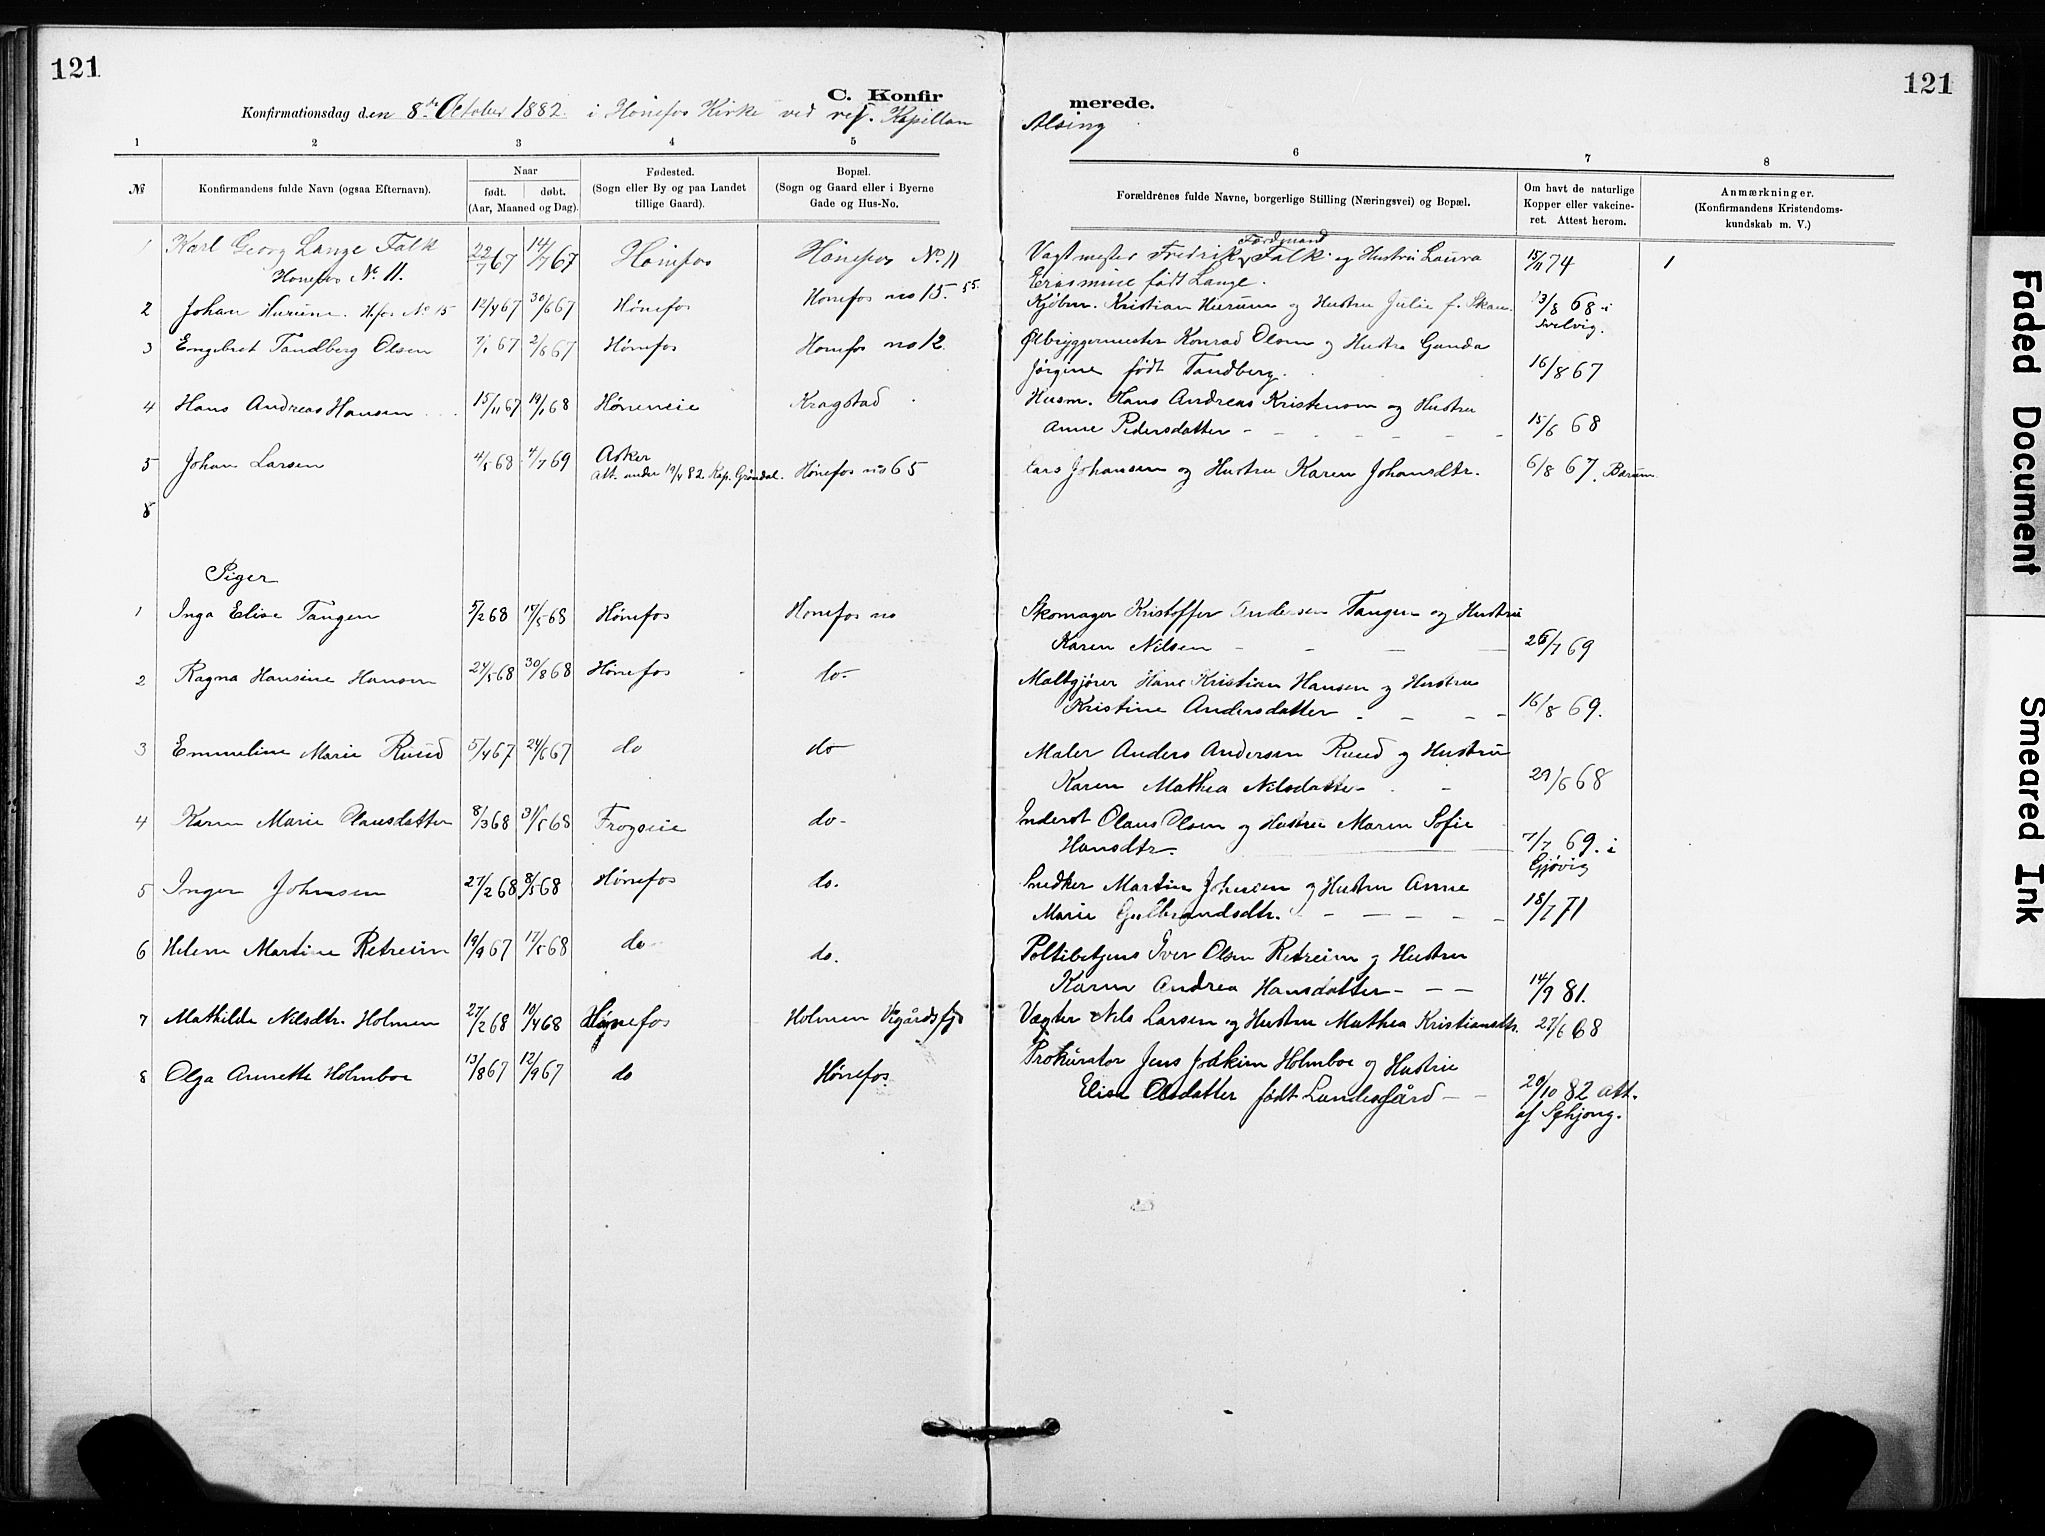 121
121
C. Konfirmerede.
Konfirmationsdag den 8de October 1882. i Hønefos Kirke ved res. Kapellan Alsing
1 2 3 4 5 6 7 8
№
Konfirmandens fulde Navn (ogsaa Efternavn).
Naar
født. døbt.
(Aar, Maaned og Dag).
Fødested.
(Sogn eller By og paa Landet
tillige Gaard).
Bopæl.
(Sogn og Gaard eller i Byerne
Gade og Hus-No.
Forældrenes fulde Navne, borgerlige Stilling (Næringsvei) og Bopæl.
Om havt de naturlige
Kopper eller vakcine-
ret. Attest herom.
Anmærkninger.
(Konfirmandens Kristendoms-
kundskab m. V.)
1 Karl Georg Lange Falk 22/7 67 14/7 67 Hønefos Hønefos No. 11 Vagtmester Fredrik Ferdinand Falk og Hustru Laura 15/11 74 1
Honefos No. 11. Erasmine født Lange.
2 Johan Hurum. Hfos No 15 12/4 67 30/6 67 Hønefos Honefos no 15. 55. Kjøbm. Kristian Hurum og Hustru Julie f. Skau. 13/8 68 i
Svelvig.
3 Engebret Tandberg Olsen 7/1 67 2/8 67 Hønefos Honefos no 12. Ølbryggermester Konrad Olsen og Hustru Gunda
Jørgine født Tandberg. 16/8 67
4 Hans Andreas Hansen 15/11 67 19/1 68 Høneneie Kragstad Husm. Hans Andreas Kristensen og Hustru
Anne Pedersdatter - 15/6 68
5 Johan Larsen 4/5 68 4/7 69 Asker Hønefos no 65 Lars Johansen og Hustru Karen Johansdtr. 6/8 67. Barum
Att. under 19/4 82 Kap. Grøndal.
8
Piger
1 Inga Elise Tangen 5/2 68 17/5 68 Hônefos Honefos no Skomager Kristoffer Andersen Tangen og Hustru
Karen Nilsen - 26/7 69
2 Ragna Hansine Hansen 24/5 68 30/8 68 Hônefos do- Maltgjører Hans Kristian Hansen og Hustru
Kristine Andersdatter - 16/8 69.
3 Emmeline Marie Ruud 5/4 67 24/6 67 do do Maler Anders Andersen Ruud og Hustru
Karen Mathea Nilsdatter- 29/6 68
4 Karen Marie Olausdatter 8/3 68 31/5 68 Frogseie do- Inderst Olaus Olsen og Hustru Maren Sofie
Hansdtr. 7/7 69. i
Gjøvig
5 Inger Johnsen 27/2 68 8/5 68 Hônefos do. Snedker Martin Johnsen og Hustru Anne
Marie Gulbrandsdtr. - 18/7 71
6 Helene Martine Retreim 19/9 67 17/5 68 do do. Politibetjent Iver Olsen Retreim og Hustru
Karen Andrea Hansdatter- 14/9 81.
7 Mathilde Nilsdtr. Holmen 27/2 68 19/4 68 Hønefos Holmen Vigårdsfjd Vægter Nils Larsen og Hustru Mathea Kristiansdtr. 27/6 68
8 Olga Annette Holmboe 13/8 67 12/9 67 do Hônefos. Prokurator Jens Joakim Holmboe og Hustru
Elise Olsdatter født Lundesgård - 20/10 82 att.
af Sghjong.
Faded Document
Smeared Ink